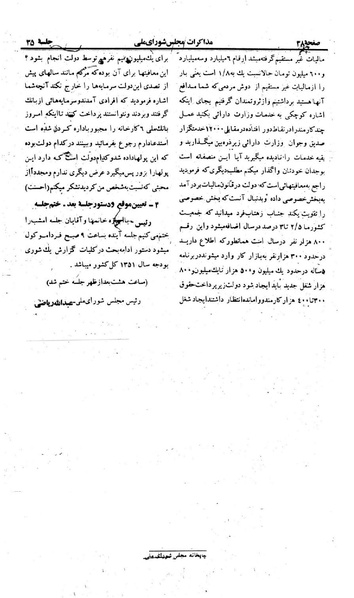 صفحه ۳۸
مذاکرات مجلس شورای ملی
جلسه ۳۵
مالیات غیر مستقیم گرفته میشد ارقام ۶ میلیارد و سه میلیارد
و ۶۰۰ میلیون تومان حالا نسبت یك به ۱/۸ است یعنی بار
را از مالیات غیر مستقیم از دوش مردمی که شما مدافع
آنها هستید برداشتیم و از ثروتمندان گرفتیم بجای اینکه
اشاره کوچکی به خدمات وزارت دارائی بکنید عمل
چند کارمند را در نقاط دور افتاده در مقابل ۱۲۰۰۰ خدمتگزار
صدیق وجوان وزارت دارائی زیر ذره‌بین میگذارید و
بقیه خدمات را نادیده میگیرید آیا این منصفانه است
بوجدان خودتان واگذار میکنم مطلب دیگری که فرمودید
راجع به معافیتهائی است که دولت در قانون مالیات بر درآمد
به بخش خصوصی داده و بدنبال آنست که بخش خصوصی
را تقویت بکند جناب زهتاب فرد میدانید که جمعیت
کشور ما ۲/۵ تا ۳ درصد در سال اضافه میشود و این رقم
۸۰۰ هزار نفر در سال است همانطور که اطلاع دارید
در حدود ۳۰۰ هزار نفر به بازار کار وارد میشوند در برنامه
۵ ساله در حدود یك میلیون و ۵۰۰ هزار تا یك میلیون و ۸۰۰
هزار شغل جدید باید ایجاد شود دولت زیر پرداخت حقوق
۳۰۰ تا ۴۰۰ هزار کارمند و امانده انتظار داشتید ایجاد شغل
برای یك میلیون و نیم نفر هم توسط دولت انجام بشود ؟
این معافیتها برای آن بود که مردم مانند سالهای پیش
از تصدی این دولت سرمایه‌ها را خارج نکند آنچه شما
اشاره فرمودید که افرادی آمدند و سرمایه‌هائی از بانك
گرفتند و بردند و نتوانستند پرداخت کنند تا اینکه امروز
بانك ملی ۹ کارخانه را مجبور به اداره کردن شده است
استدعا دارم رجوع بفرمائید و ببینید در کدام دولت بوده
که این پولها داده شد و کدام دولت است که دارد این
پولها را بزور پس میگیرد عرض دیگری ندارم و مجدداً از
محبتی که نسبت به شخص من کردید تشکر میکنم (احسنت)
۴ ـ تعیین موقع و دستور جلسه بعد . ختم جلسه
رئیس ـ با اجازه خانمها و آقایان جلسه امشب را
ختم میکنیم جلسه آینده ساعت ۹ صبح فردا موکول
میشود دستور ادامه بحث در کلیات گزارش یك شوری
بودجه سال ۱۳۵۱ کل کشور میباشد .
(ساعت هشت بعد از ظهر جلسه ختم شد)
رئیس مجلس شورای ملی ـ عبدالله ریاضی
چاپخانه مجلس شورای ملی